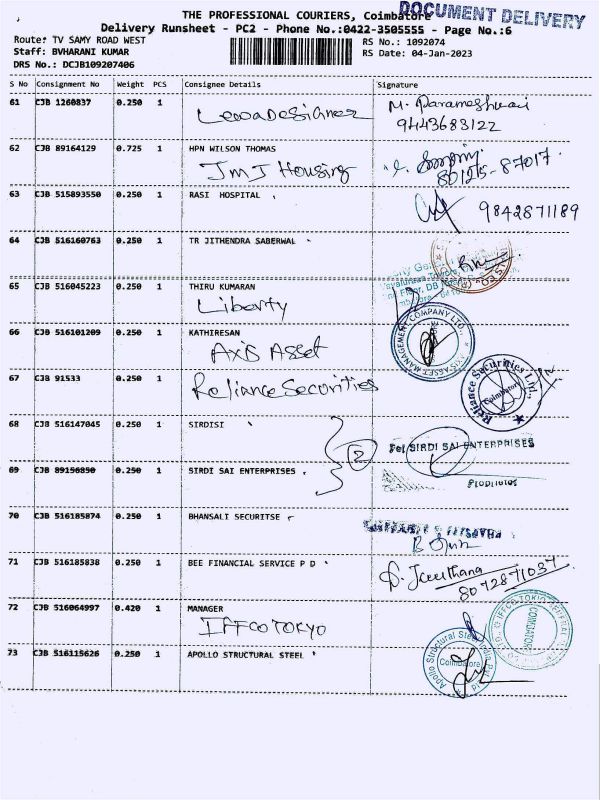 DOCUMENT DELIVERY
THE PROFESSIONAL COURIERS, Coimbatore
Delivery Runsheet - PC2 - Phone No.:0422-3505555 - Page No.:6
Route: TV SAMY ROAD WEST
RS No.: 1092074
Staff: BVHARANI KUMAR
RS Date: 04-Jan-2023
DRS No.: DCJB109207406
S No Consignment No Weight PCS Consignee Details Signature
61 CJB 1260837 0.250 1
M. Parameshwari
9443683122
62 CJB 89164129 0.725 1 HPN WILSON THOMAS
JMJ Housing
80125-87017
63 CJB 515893550 0.250 1 RASI HOSPITAL
9842871189
64 CJB 516160763 0.250 1 TR JITHENDRA SABERWAL
65 CJB 516045223 0.250 1 THIRU KUMARAN
Liberty
66 CJB 516101209 0.250 1 KATHIRESAN
Axis Asset
AXIS ASSET MANAGEMENT COMPANY LTD.
67 CJB 91533 0.250 1
Reliance Securities
Reliance Securities Ltd.,
Coimbatore
68 CJB 516147045 0.250 1 SIRDISI
2
SIRDI SAI ENTERPRISES
69 CJB 89156850 0.250 1 SIRDI SAI ENTERPRISES
Proprietor
70 CJB 516185874 0.250 1 BHANSALI SECURITSE
71 CJB 516185838 0.250 1 BEE FINANCIAL SERVICE P D
8072871037
72 CJB 516064997 0.420 1 MANAGER
IFFCO TOKYO
IFFCO TOKIO GENERAL
COIMBATORE
73 CJB 516115626 0.250 1 APOLLO STRUCTURAL STEEL
Apollo Structural Steel India Pvt Ltd
Coimbatore